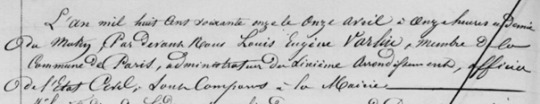 L'an mil huit cent soixante onze le onze avril à onze heures et demie
du Matin, Par devant Nous Louis Eugène Varlin, membre de la
Commune de Paris, administrateur du sixième arrondissement, officier
de l'Etat Civil, sont Comparus à la Mairie